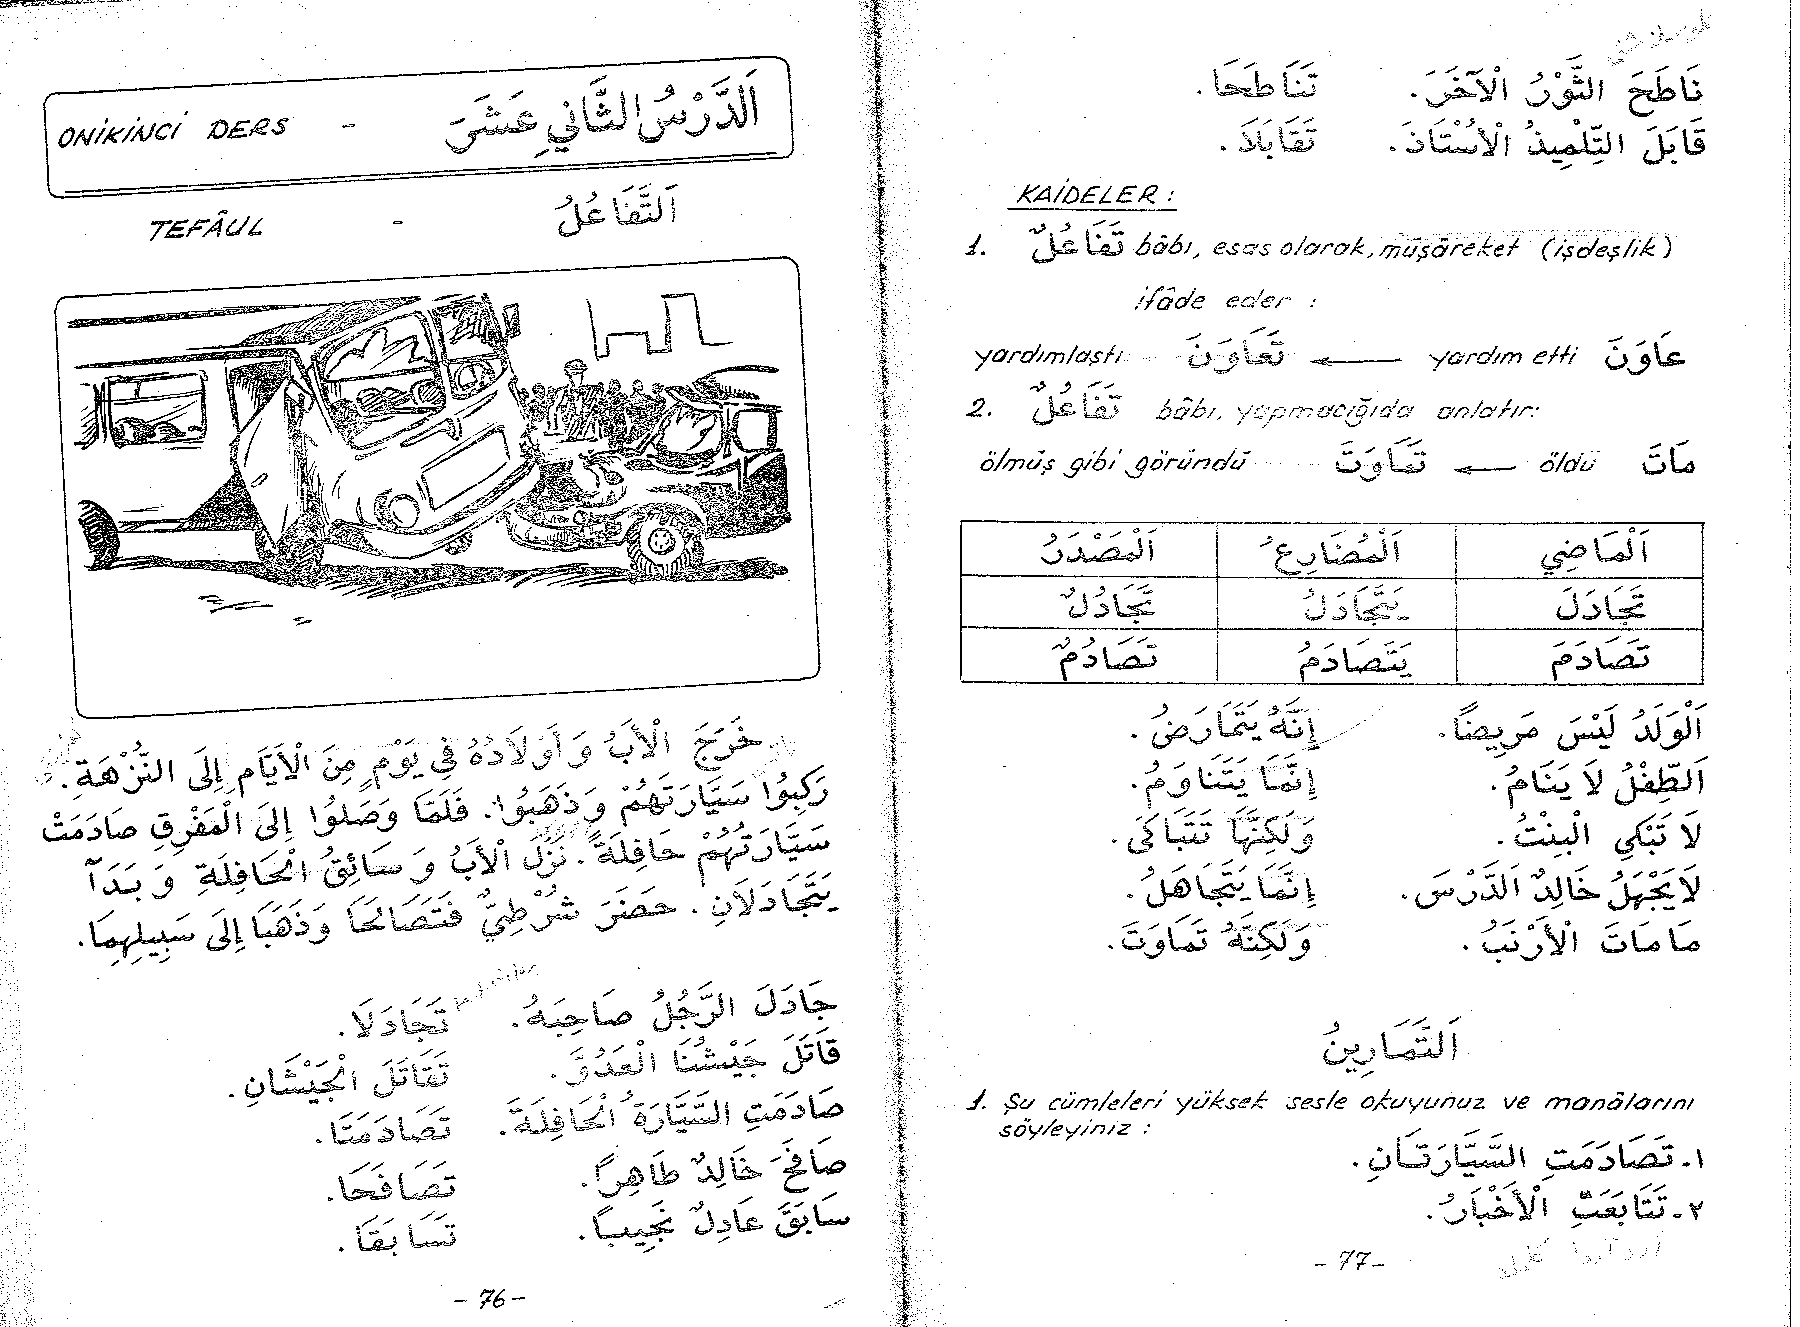 ONİKİNCİ DERS - اَلدَّرْسُ الثَّانِي عَشَرَ
TEFÂUL - اَلتَّفَاعُلُ
خَرَجَ الْأَبُ وَأَوْلَادُهُ فِي يَوْمٍ مِنَ الْأَيَّامِ إِلَى النُّزْهَةِ.
رَكِبُوا سَيَّارَتَهُمْ وَذَهَبُوا. فَلَمَّا وَصَلُوا إِلَى الْمَفْرِقِ صَادَمَتْ
سَيَّارَتُهُمْ حَافِلَةً. نَزَلَ الْأَبُ وَسَائِقُ الْحَافِلَةِ وَبَدَآ
يَتَجَادَلَانِ. حَضَرَ شُرْطِيٌّ فَتَصَالَحَا وَذَهَبَا إِلَى سَبِيلِهِمَا.
جَادَلَ الرَّجُلُ صَاحِبَهُ. تَجَادَلَا.
قَاتَلَ جَيْشُنَا الْعَدُوَّ. تَقَاتَلَ الْجَيْشَانِ.
صَادَمَتِ السَّيَّارَةُ الْحَافِلَةَ. تَصَادَمَتَا.
صَافَحَ خَالِدٌ طَاهِرًا. تَصَافَحَا.
سَابَقَ عَادِلٌ نَجِيبًا. تَسَابَقَا.
- 76 -
نَاطَحَ الثَّوْرُ الْآخَرَ. تَنَاطَحَا.
قَابَلَ التِّلْمِيذُ الْأُسْتَاذَ. تَقَابَلَا.
KAİDELER :
1. تَفَاعُلٌ bâbı, esas olarak, müşâreket (işdeşlik)
ifâde eder :
عَاوَنَ yardım etti ← تَعَاوَنَ yardımlaştı
2. تَفَاعُلٌ bâbı, yapmacığıda anlatır:
مَاتَ öldü ← تَمَاوَتَ ölmüş gibi göründü
اَلْمَاضِي اَلْمُضَارِعُ اَلْمَصْدَرُ
تَجَادَلَ يَتَجَادَلُ تَجَادُلٌ
تَصَادَمَ يَتَصَادَمُ تَصَادُمٌ
اَلْوَلَدُ لَيْسَ مَرِيضًا. إِنَّهُ يَتَمَارَضُ.
اَلطِّفْلُ لَا يَنَامُ. إِنَّمَا يَتَنَاوَمُ.
لَا تَبْكِي الْبِنْتُ. وَلَكِنَّهَا تَتَبَاكَى.
لَا يَجْهَلُ خَالِدٌ اَلدَّرْسَ. إِنَّمَا يَتَجَاهَلُ.
مَا مَاتَ الْأَرْنَبُ. وَلَكِنَّهُ تَمَاوَتَ.
اَلتَّمَارِينُ
1. Şu cümleleri yüksek sesle okuyunuz ve manâlarını
söyleyiniz :
١- تَصَادَمَتِ السَّيَّارَتَانِ.
٢- تَتَابَعَتِ الْأَخْبَارُ.
- 77 -